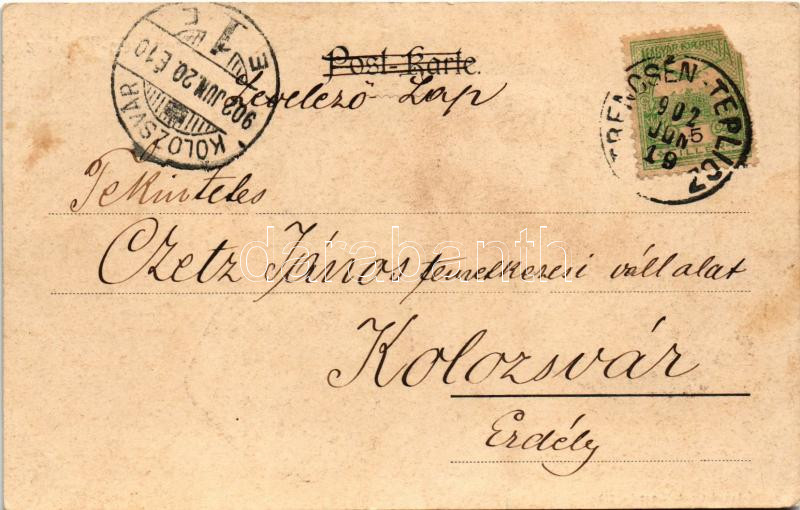 Post-Karte.
Levelező Lap
KOLOZSVÁR
902 JUN. 20. É. 10
1 E
MAGYAR KIR. POSTA
5
TRENCSÉN-TEPLICZ
902
JUN
19
Tekintetes
Czetz János temetkezési vállalat
Kolozsvár
Erdély
darabanth